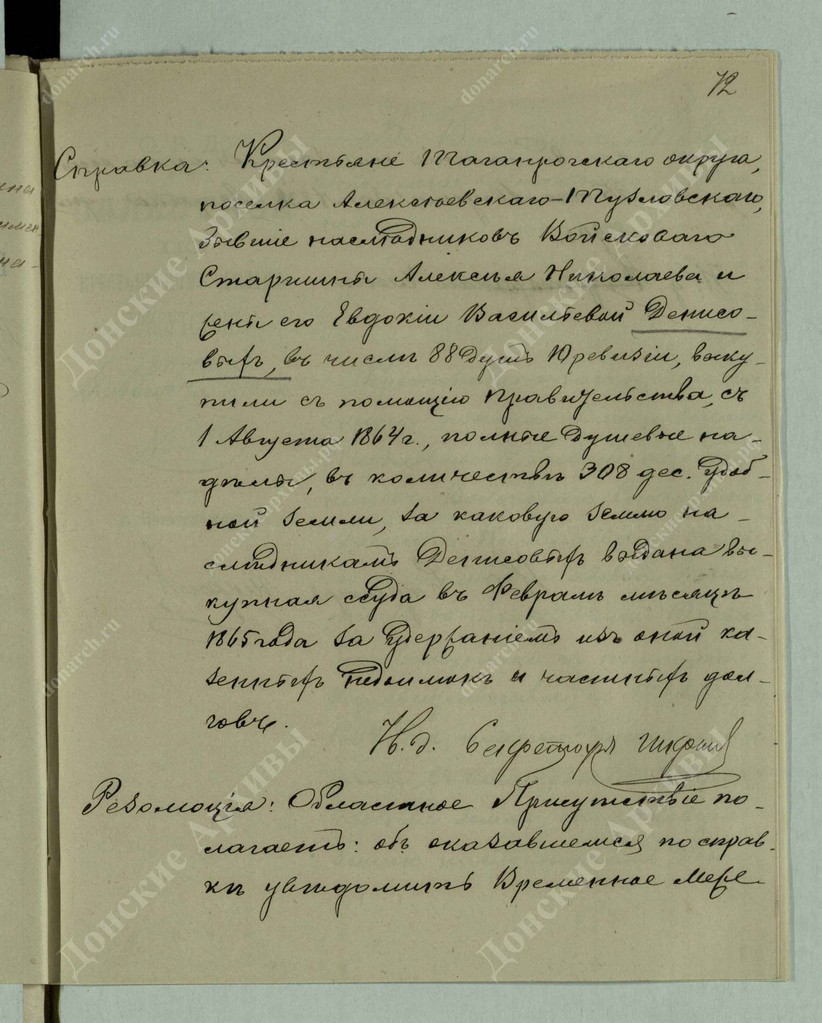 72
Справка: Крестьяне Таганрогскаго округа,
поселка Алексѣевскаго-Тузловскаго,
бывшіе наслѣдниковъ Войсковаго
Старшины Алексѣя Николаева и
жены его Евдокіи Васильевой Денисо-
выхъ, въ числѣ 88 душъ 10 ревизіи, выку-
пили съ помощію Правительства, съ
1 Августа 1864 г., полные душевые на-
дѣлы, въ количествѣ 308 дес. удоб-
ной земли, за каковую землю на-
слѣдникамъ Денисовыхъ выдана вы-
купная ссуда въ Февралѣ мѣсяцѣ
1865 года за удержаніемъ изъ оной ка-
зенныхъ недоимокъ и частныхъ дол-
говъ.
И. д. Секретаря
Резолюція: Областное Присутствіе по-
лагаетъ: объ оказавшемся по справ-
кѣ увѣдомить Временное Меже-
Донские Архивы
donarch.ru